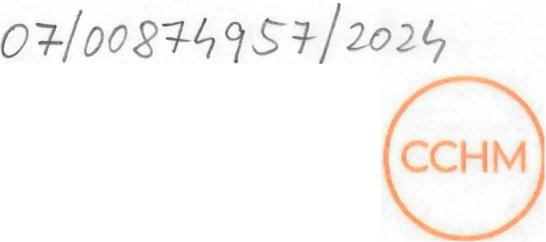 07/00874957/2024
CCHM